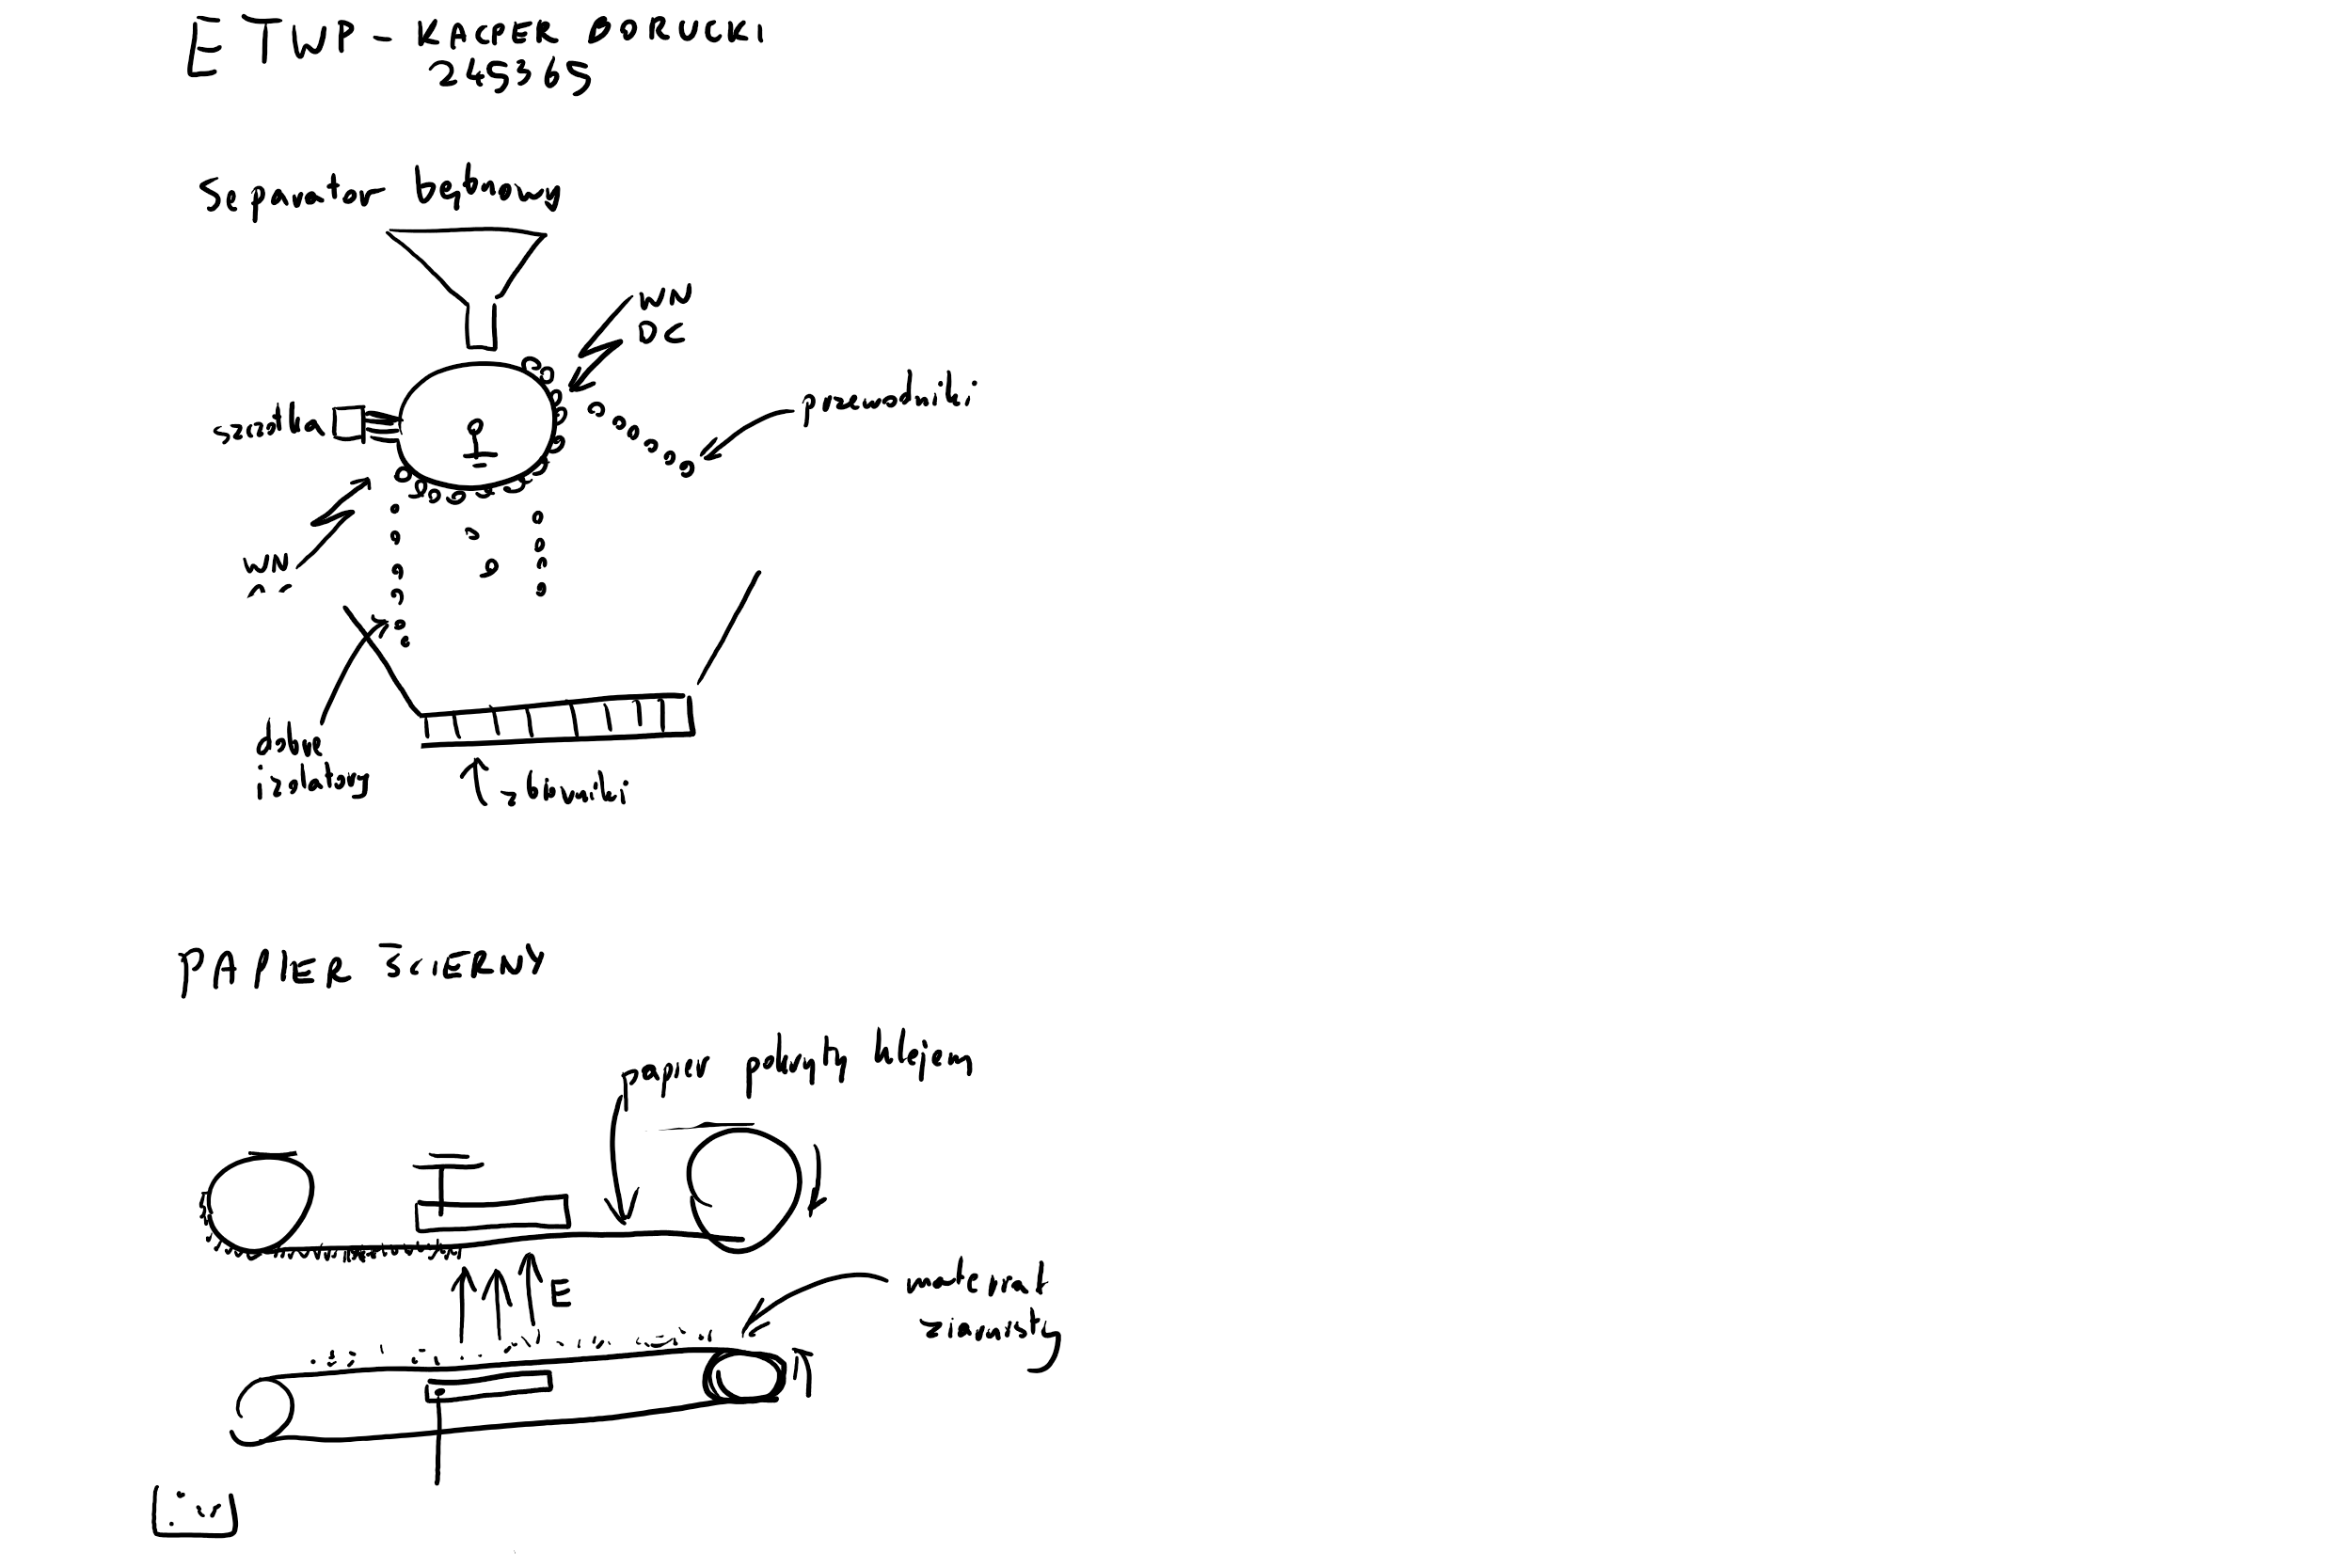 ETWP - KACPER BORUCKI
245365
Separator bębnowy
WN
DC
przewodniki
szczotka
WN
dobre
izolatory
zbiorniki
PAPIER ŚCIERNY
papier pokryty klejem
E
materiał
ziarnisty